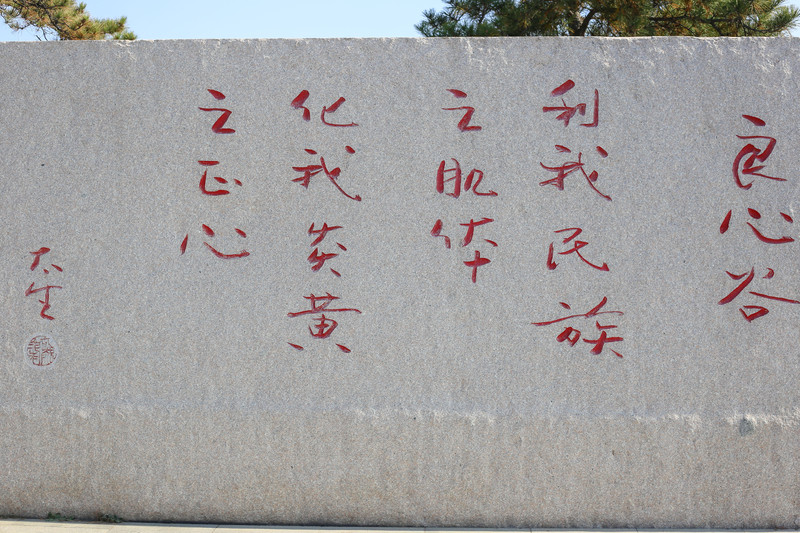 良心谷
利我民族
之肌体
化我炎黄
之正心
太生